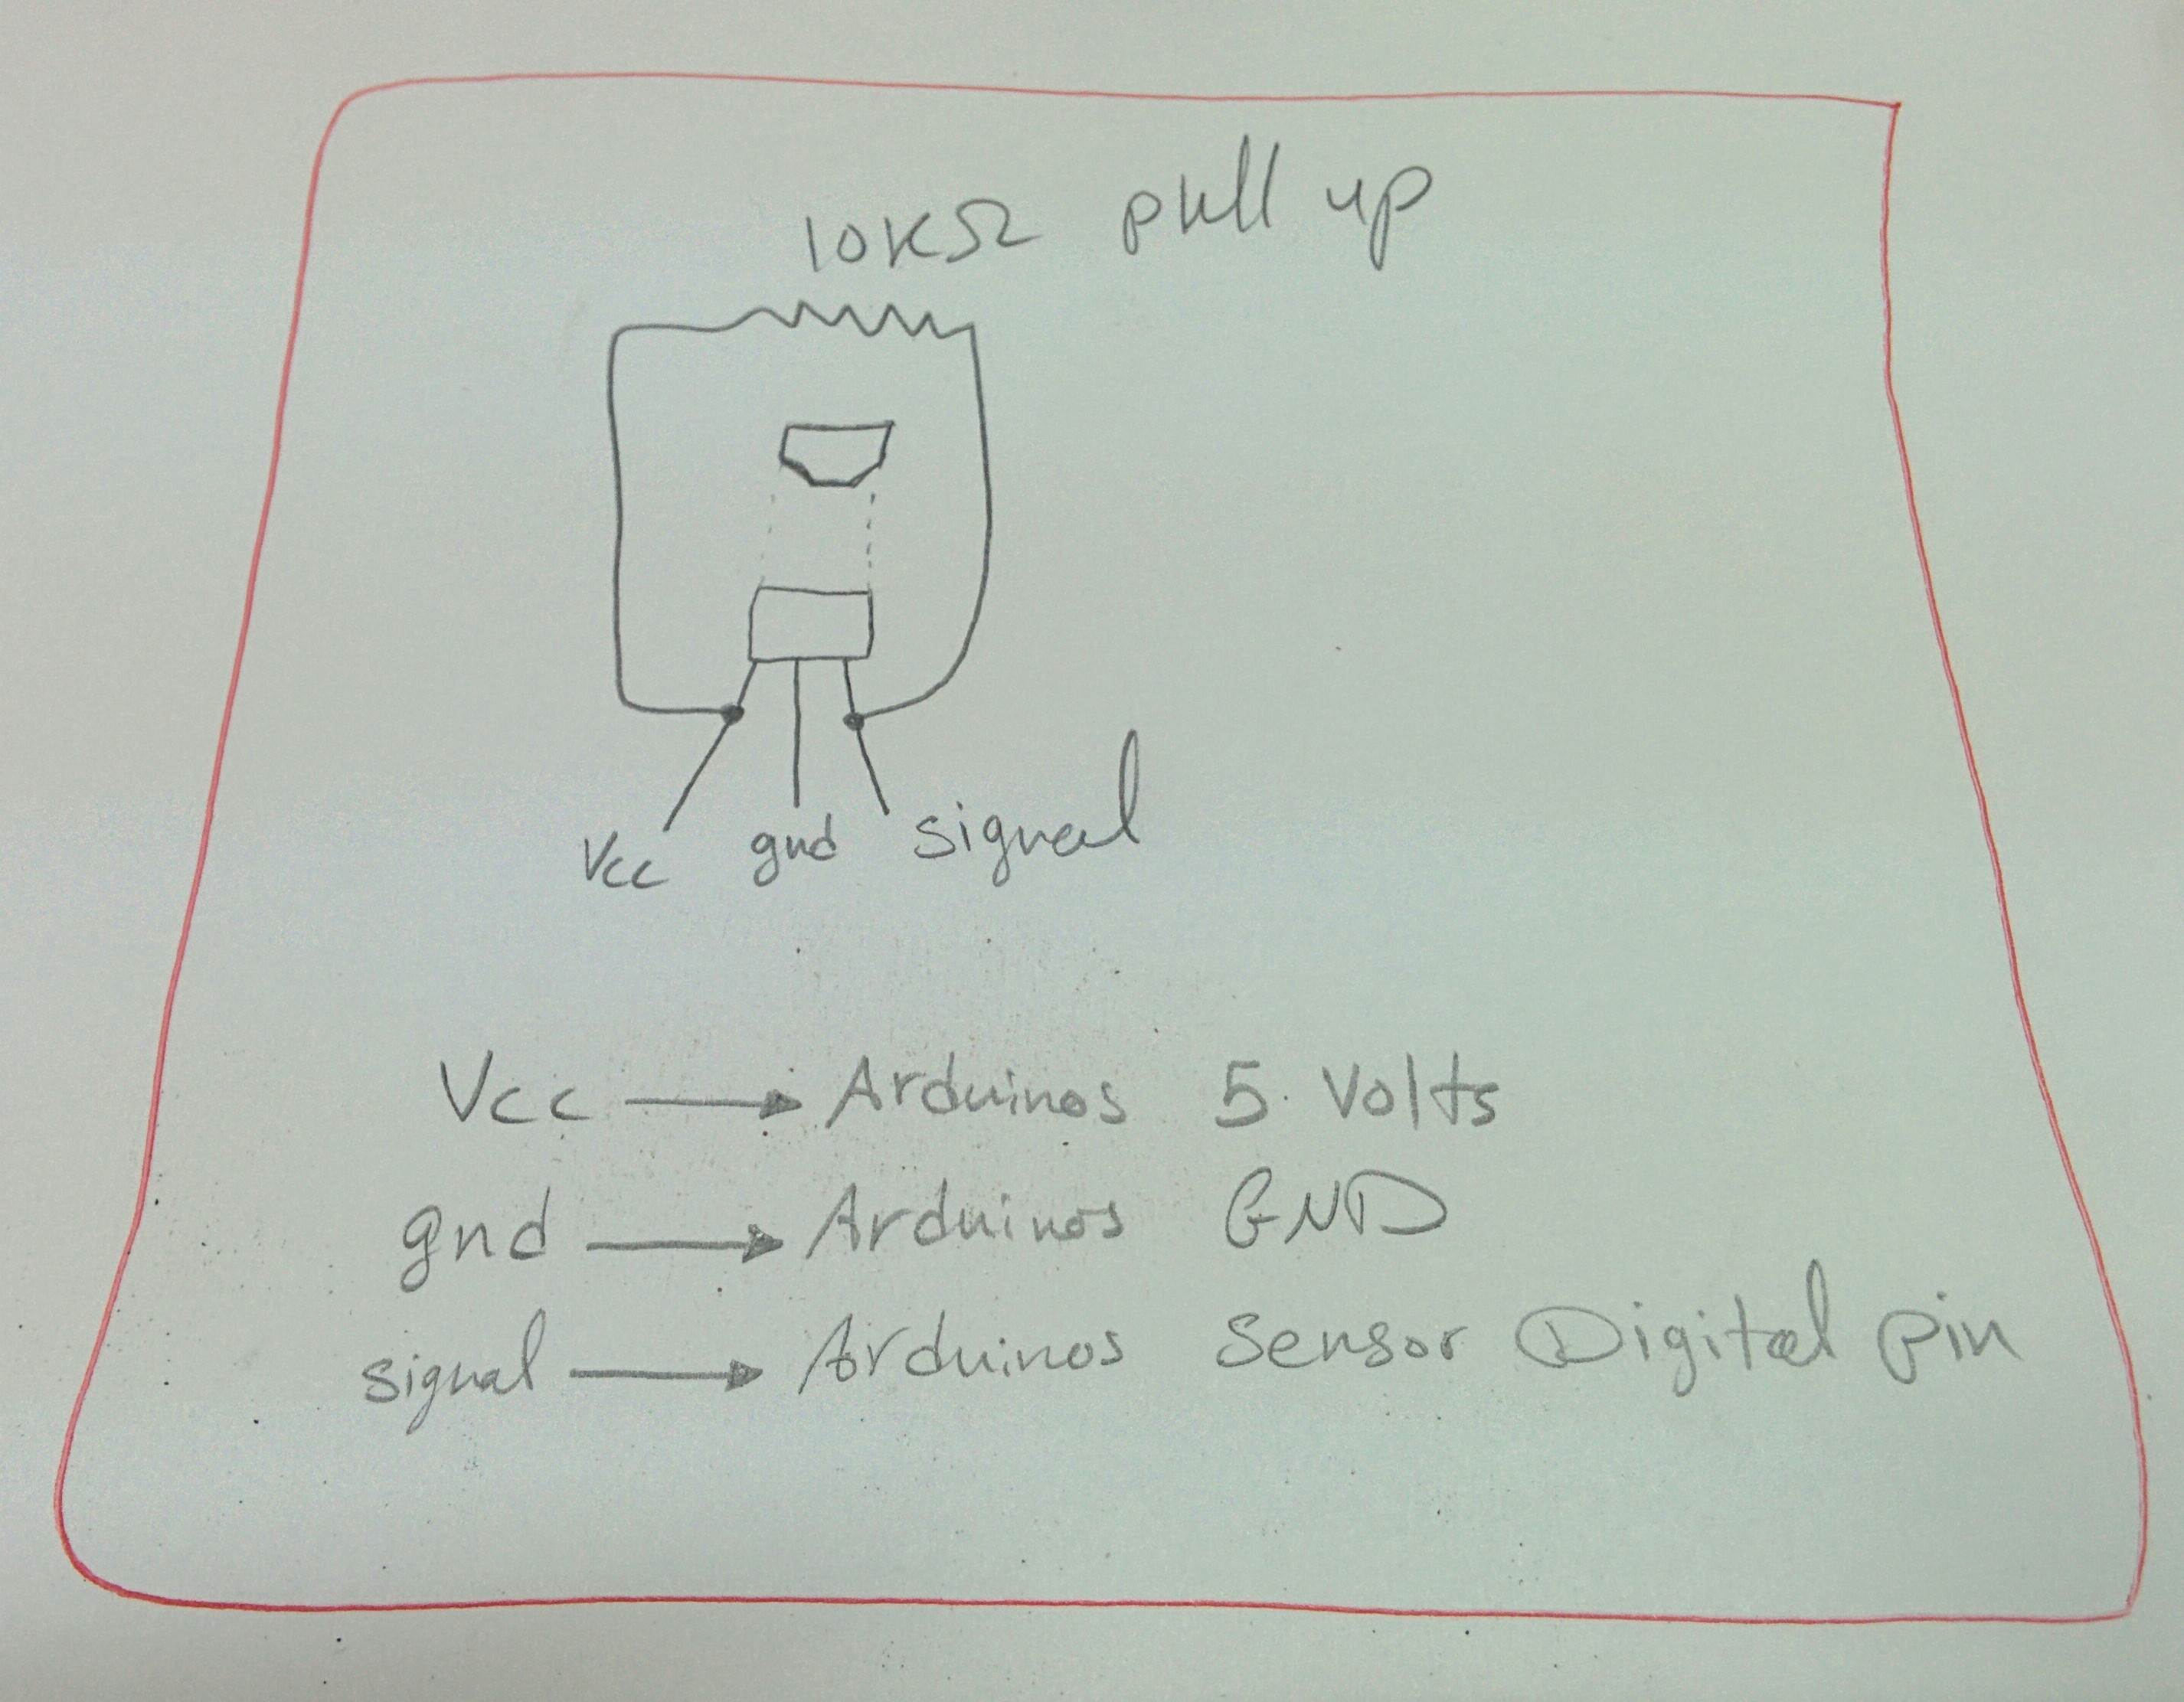 10KΩ pull up
Vcc gnd signal
Vcc → Arduinos 5 Volts
gnd → Arduinos GND
signal → Arduinos Sensor Digital pin